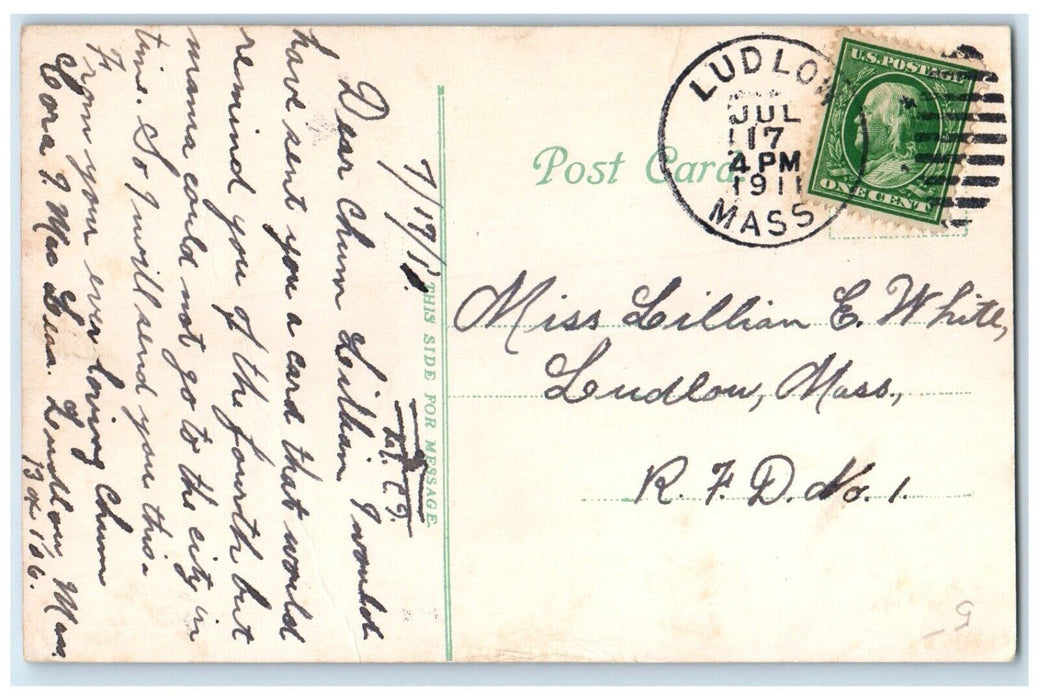 LUDLOW
JUL
17
4 PM
1911
MASS
U.S. POSTAGE
ONE CENT
Post Card
THIS SIDE FOR MESSAGE
Miss Lillian E. White,
Ludlow, Mass.,
R. F. D. No. 1.
7/17/11.
Dear Chum Lillian I would
have sent you a card that would
remind you of the fourth but
mama could not go to the city in
time. So I will send you this.
From your ever loving Chum
Cora J. Mac Ludlow, Mass.
Box 166.
5-